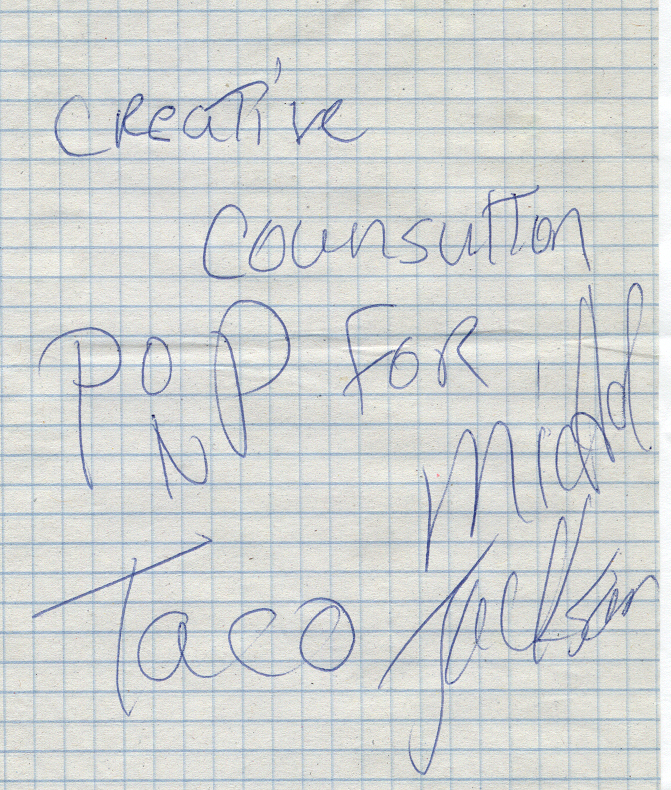 Creative
Counsultion
POP FOR
N
Midd
Taco Jackson